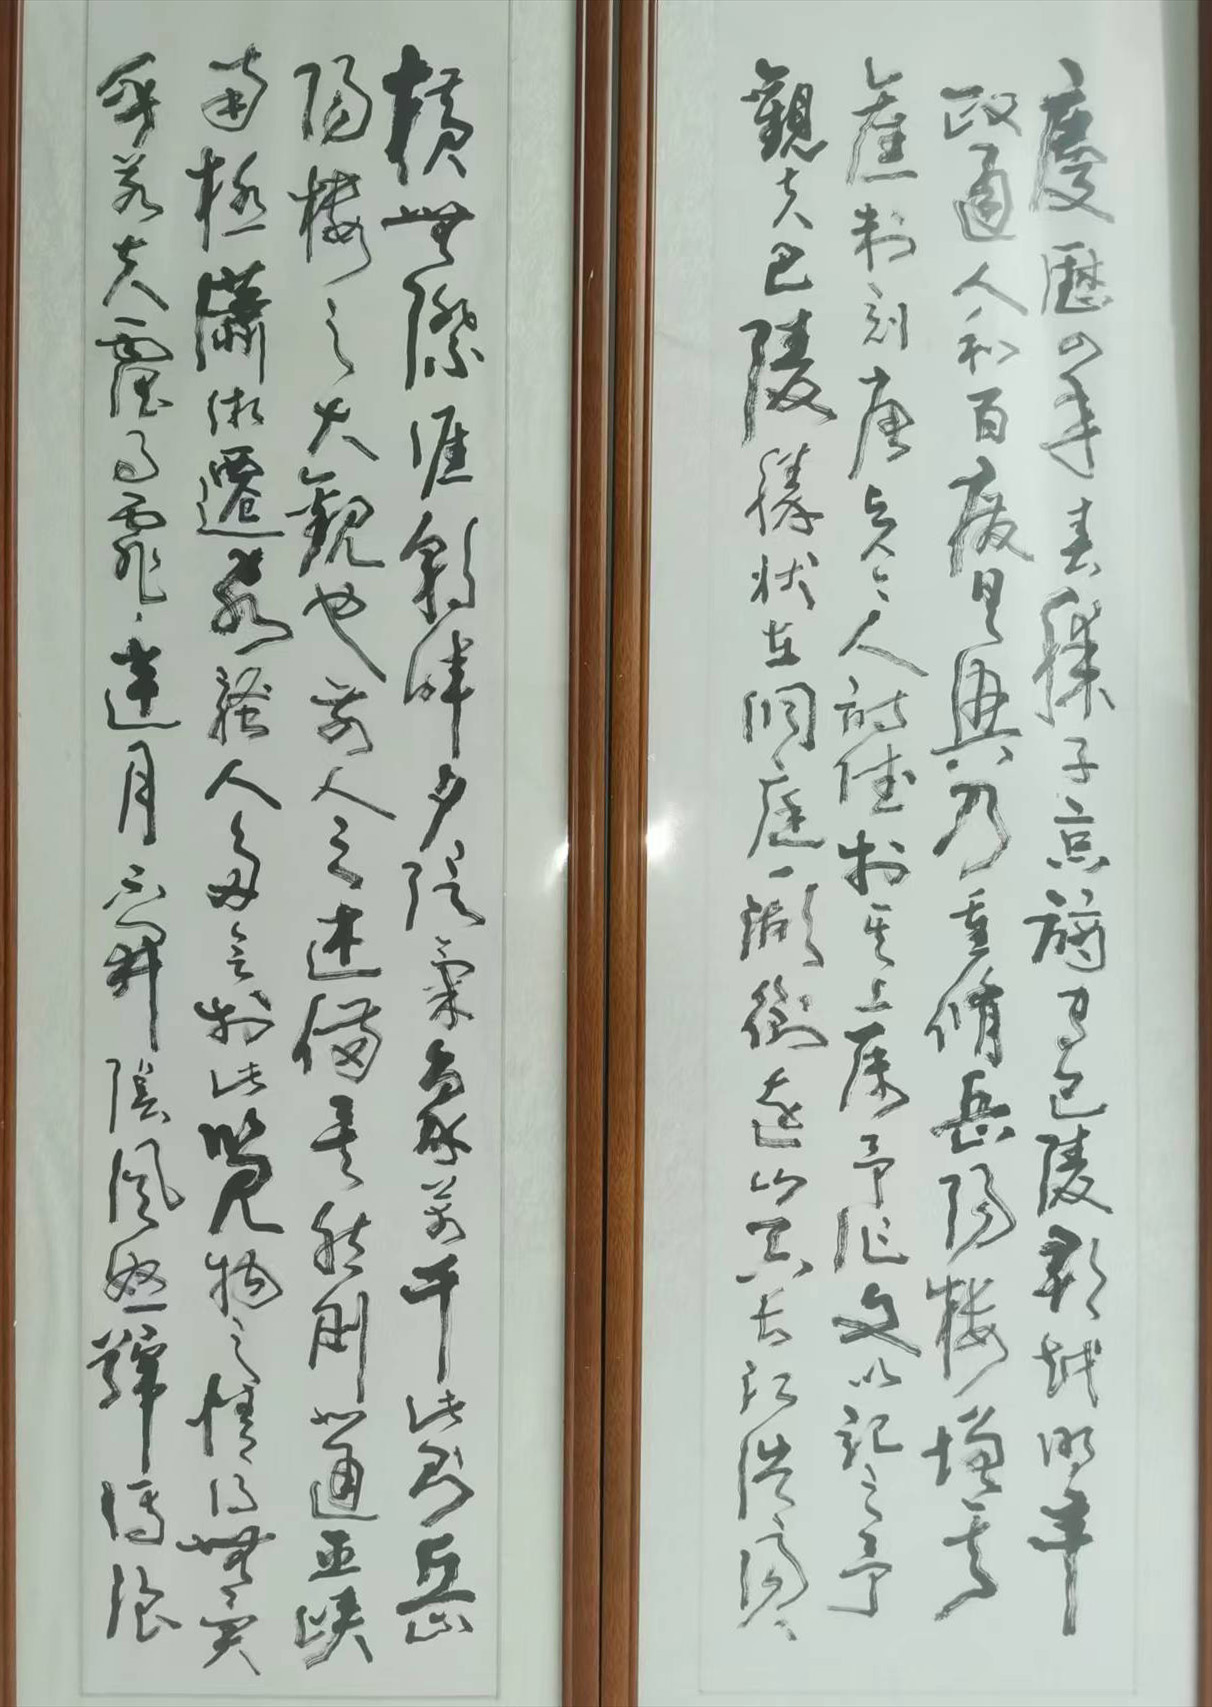 慶歷四年春滕子京謫守巴陵郡越明年
政通人和百廢具興乃重脩岳陽樓增其
舊制刻唐賢今人詩賦於其上屬予作文以記之予
觀夫巴陵勝狀在洞庭一湖銜遠山吞長江浩浩湯湯
橫無際涯朝暉夕陰氣象萬千此則岳
陽樓之大觀也前人之述備矣然則北通巫峽
南極瀟湘遷客騷人多會於此覽物之情得無異
乎若夫霪雨霏霏連月不開陰風怒號濁浪